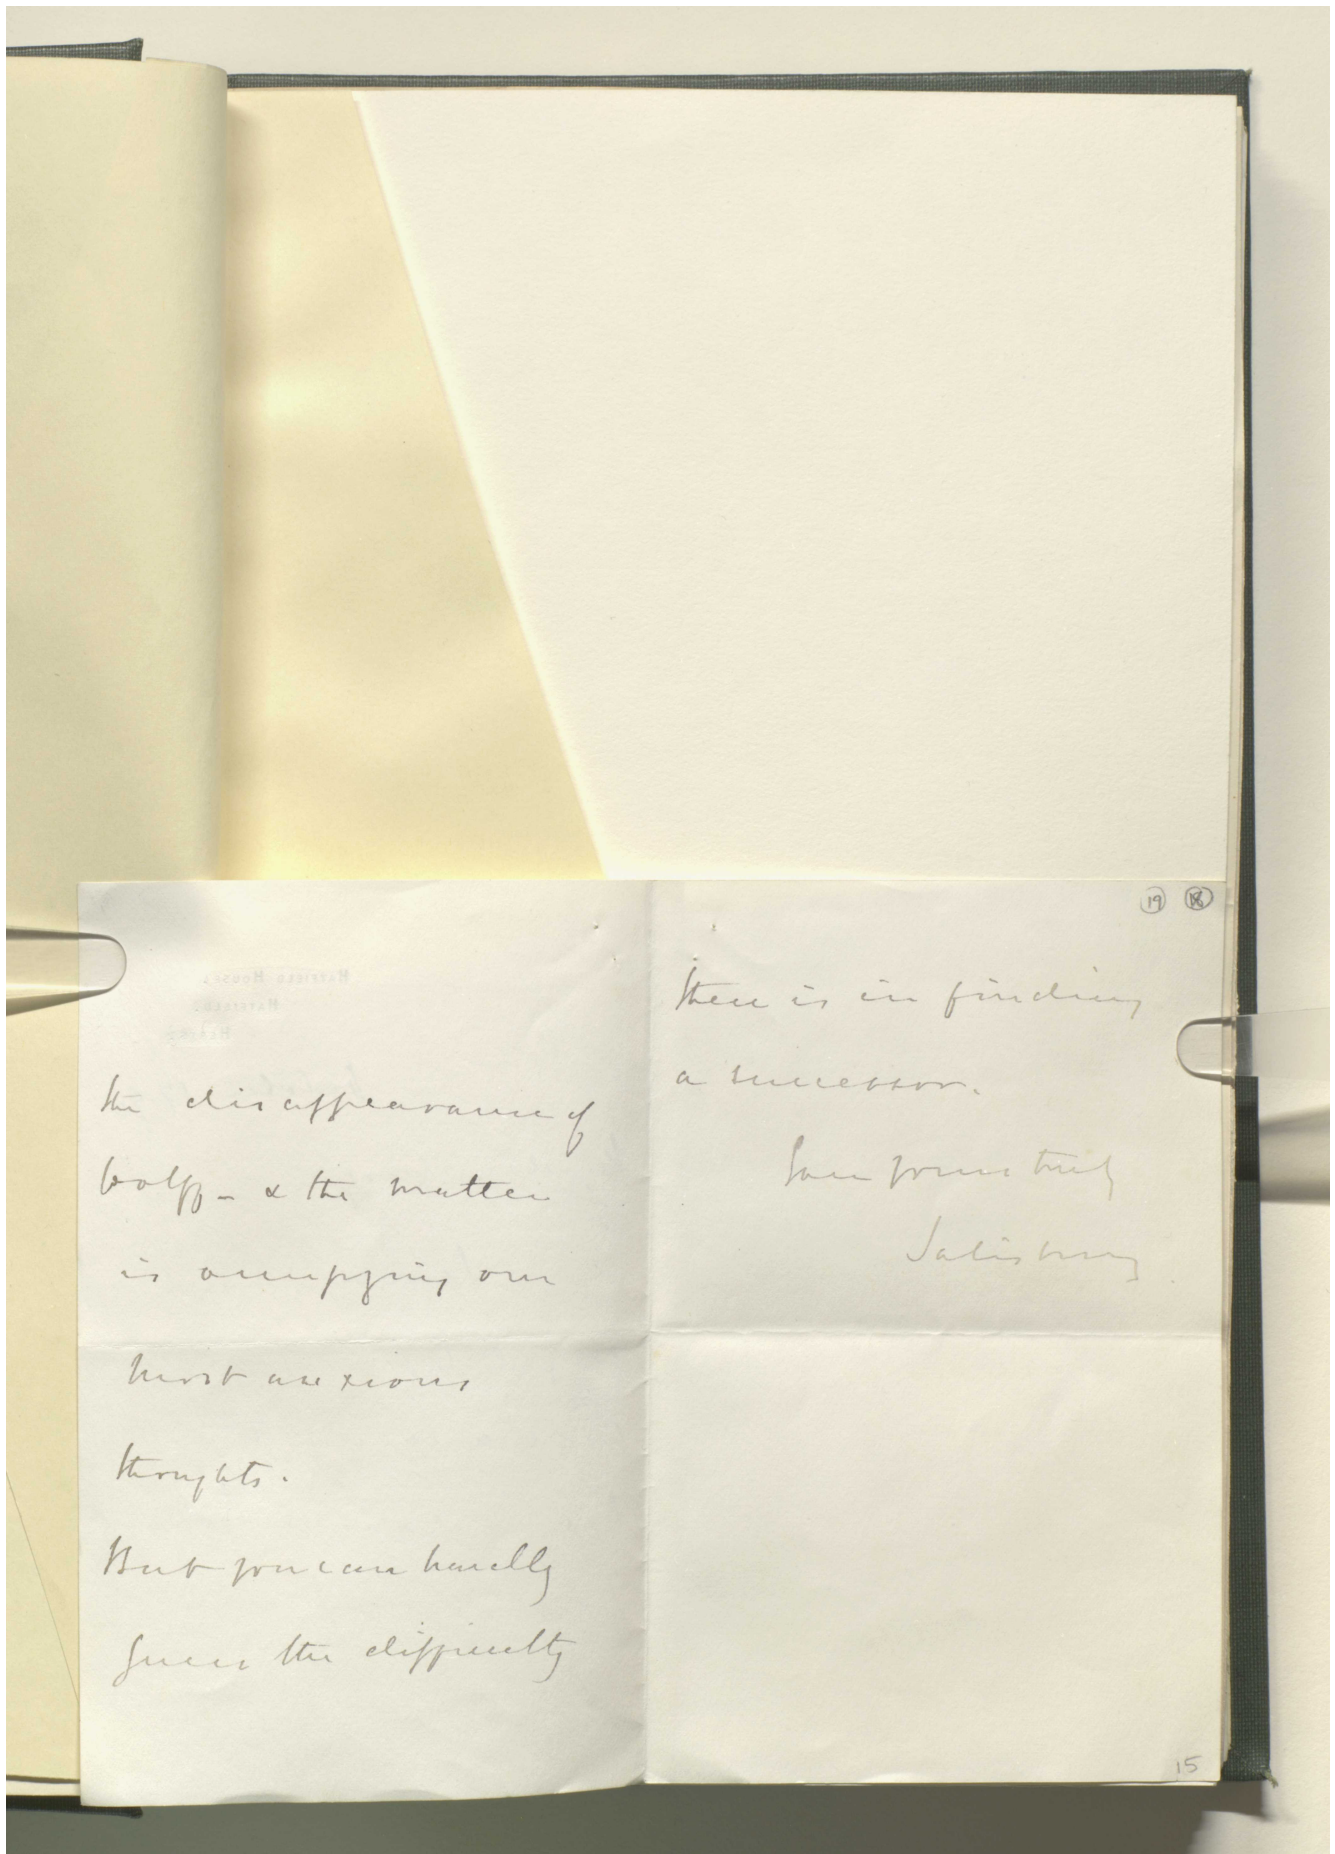 the disappearance of
Wolff – & the matter
is occupying our
most anxious
thoughts.
But you can hardly
guess the difficulty
19 18
there is in finding
a successor.
yours truly
Salisbury
15